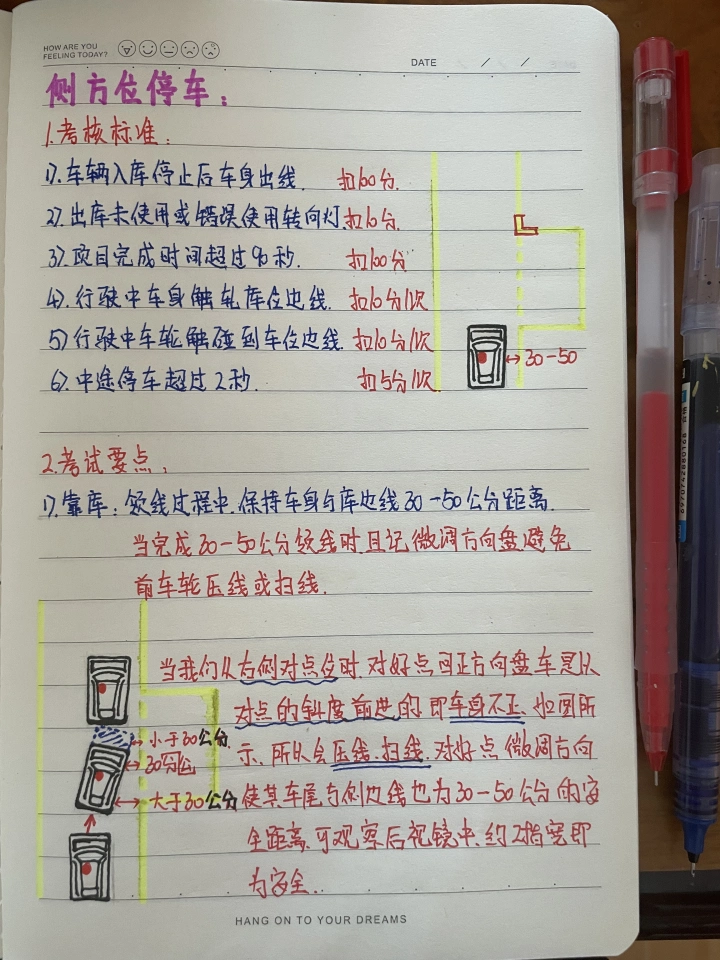 HOW ARE YOU
FEELING TODAY?
DATE / /
侧方位停车：
1.考核标准：
1).车辆入库停止后车身出线. 扣100分.
2).出库未使用或错误使用转向灯.扣10分.
3).项目完成时间超过90秒. 扣100分
4).行驶中车身触轧库位边线. 扣10分/次
5)行驶中车轮触碰到车位边线. 扣10分/次
6).中途停车超过2秒. 扣5分/次
30-50
2.考试要点：
1).靠库：绞线过程中.保持车身与库边线30-50公分距离.
当完成30-50公分绞线时且记微调方向盘避免
前车轮压线或扫线.
当我们从右侧对点位时.对好点回正方向盘车是以
对点的斜度前进的.即车身不正、如图所
示、所以会压线.扫线.对好点微调方向
使其车尾与侧边线也为30-50公分的安
全距离、可观察后视镜中、约2指宽即
为安全.
小于30公分.
30公分
大于30公分
HANG ON TO YOUR DREAMS
6970742880168